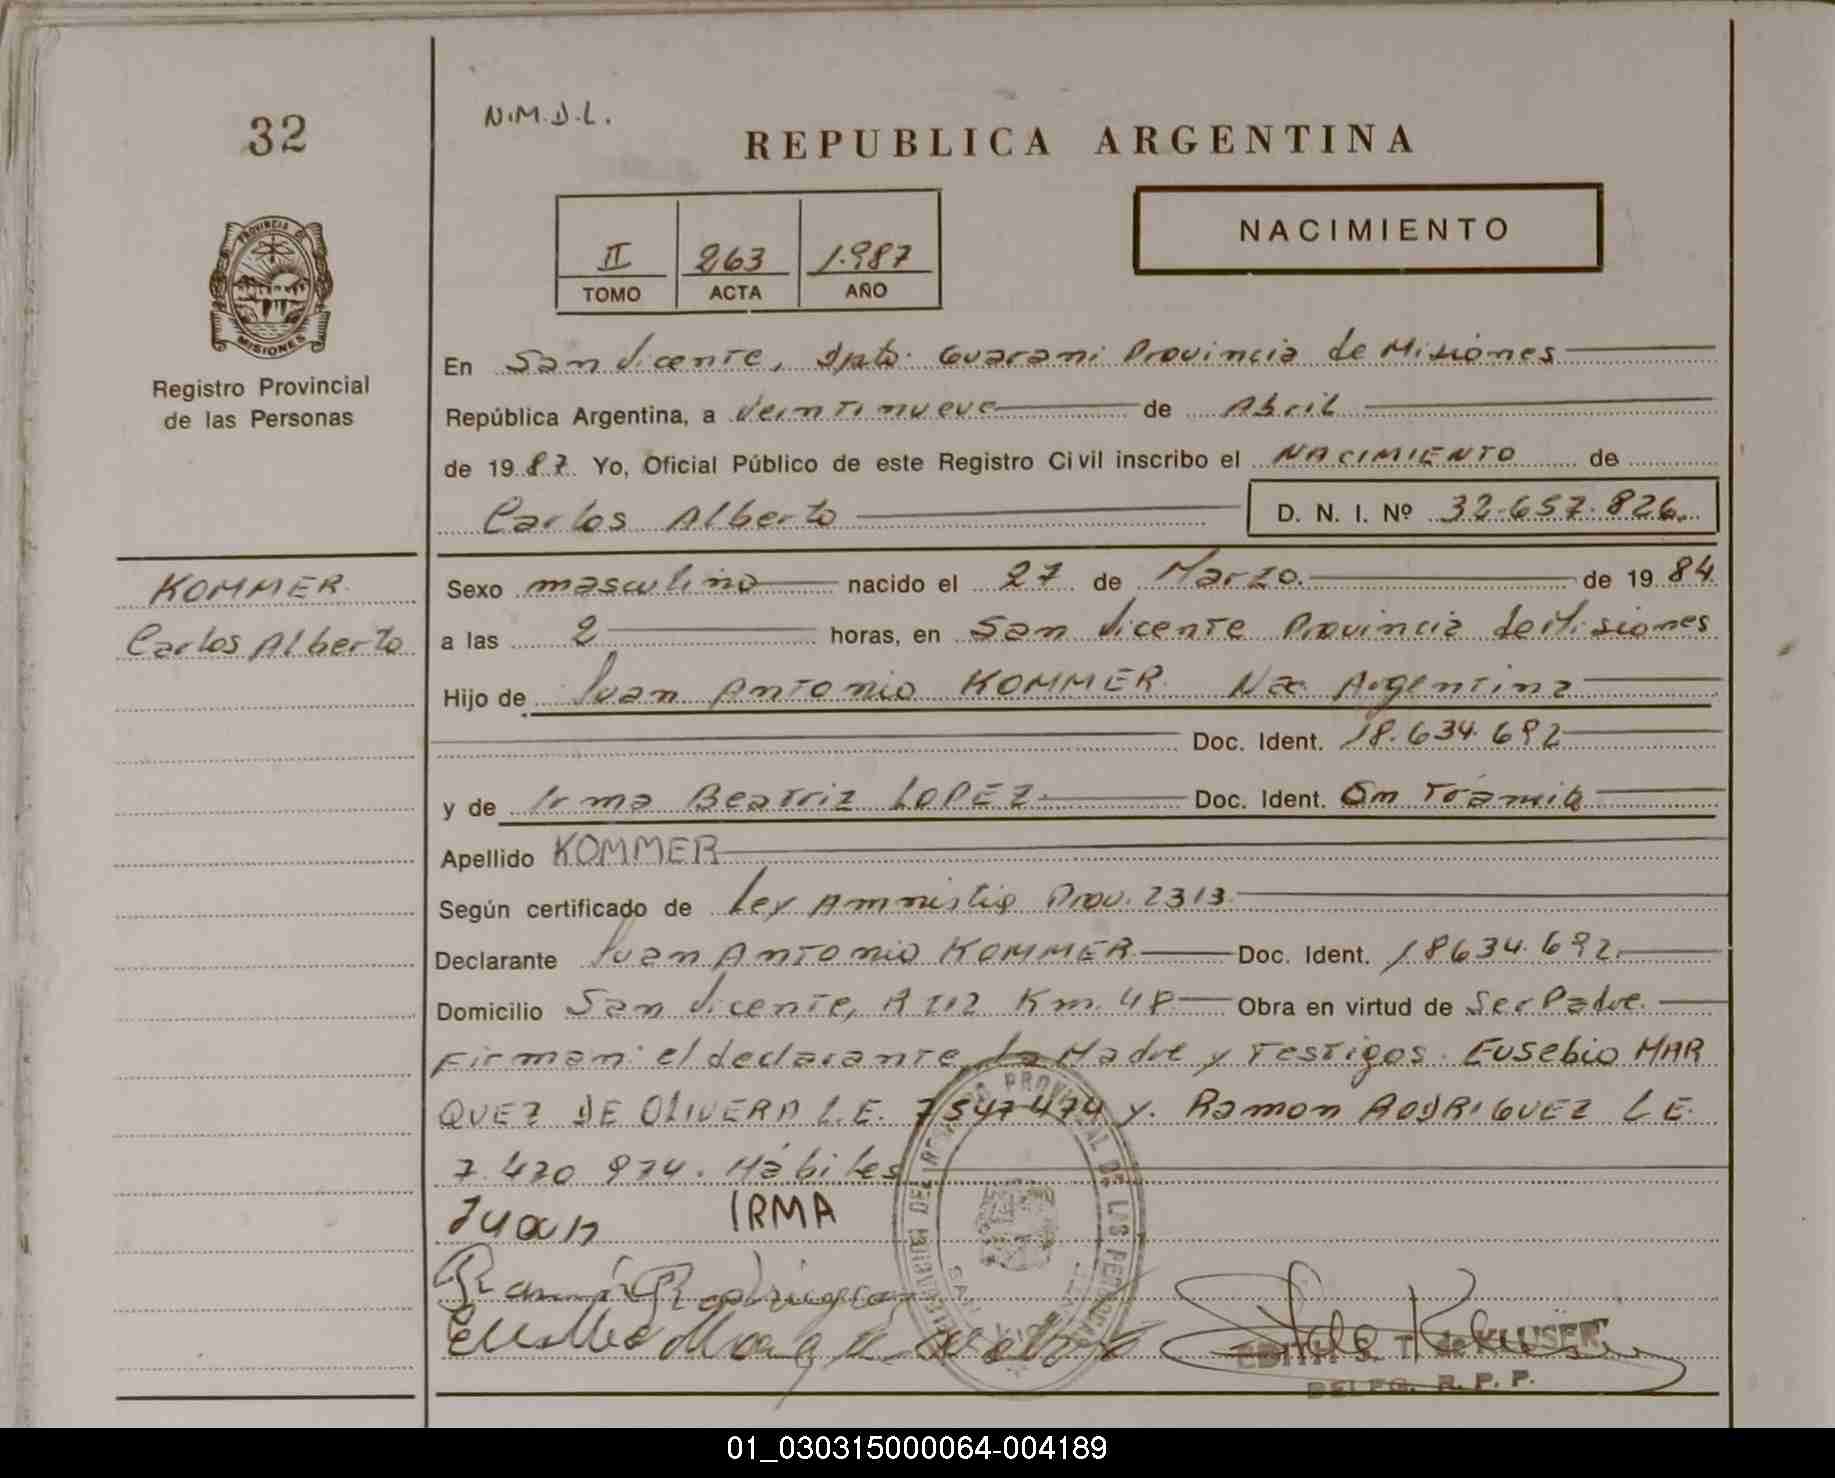 32
N.M.D.L.
REPUBLICA ARGENTINA
PROVINCIA DE
MISIONES
Registro Provincial
de las Personas
II 263 1.987
TOMO ACTA AÑO
NACIMIENTO
En San Vicente, Dpto. Guarani Provincia de Misiones
República Argentina, a Veintinueve de Abril
de 1987. Yo, Oficial Público de este Registro Civil inscribo el NACIMIENTO de
Carlos Alberto D. N. I. Nº 32.657.826.
KOMMER
Carlos Alberto
Sexo masculino nacido el 27 de Marzo. de 1984
a las 2 horas, en San Vicente Provincia de Misiones
Hijo de Juan Antonio KOMMER Nac. Argentina
Doc. Ident. 18.634.692
y de Irma Beatriz LOPEZ Doc. Ident. En Trámite
Apellido KOMMER
Según certificado de Ley Amnistia Prov. 2313
Declarante Juan Antonio KOMMER Doc. Ident. 18634.692
Domicilio San Vicente, R 212 Km. 48 Obra en virtud de Ser Padre.
Firman: el declarante, la Madre y Testigos. Eusebio MAR
QUEZ DE OLIVERA L.E. 7547474 y. Ramon RODRIGUEZ L.E.
7.470 974. Hábiles
Juan IRMA
Ramón Rodriguez
EDITH S. T. de KLUSENER
DELEG. R. P. P.
01_030315000064-004189